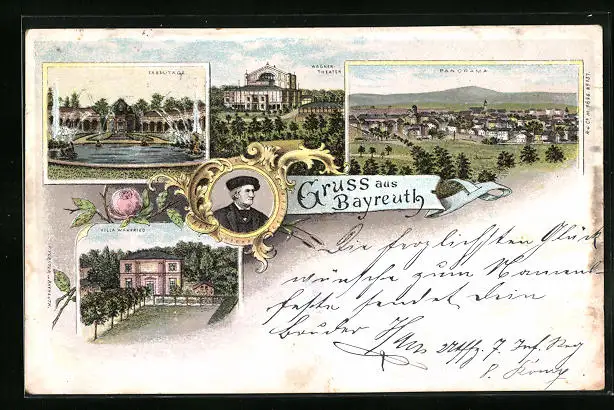 EREMITAGE
WAGNER-
THEATER
PANORAMA
Gruss aus
Bayreuth
VILLA WAHNFRIED
Die herzlichsten Glück
wünsche zum Namens
feste sendet Dein
Bruder Hans
7. Inf. Reg